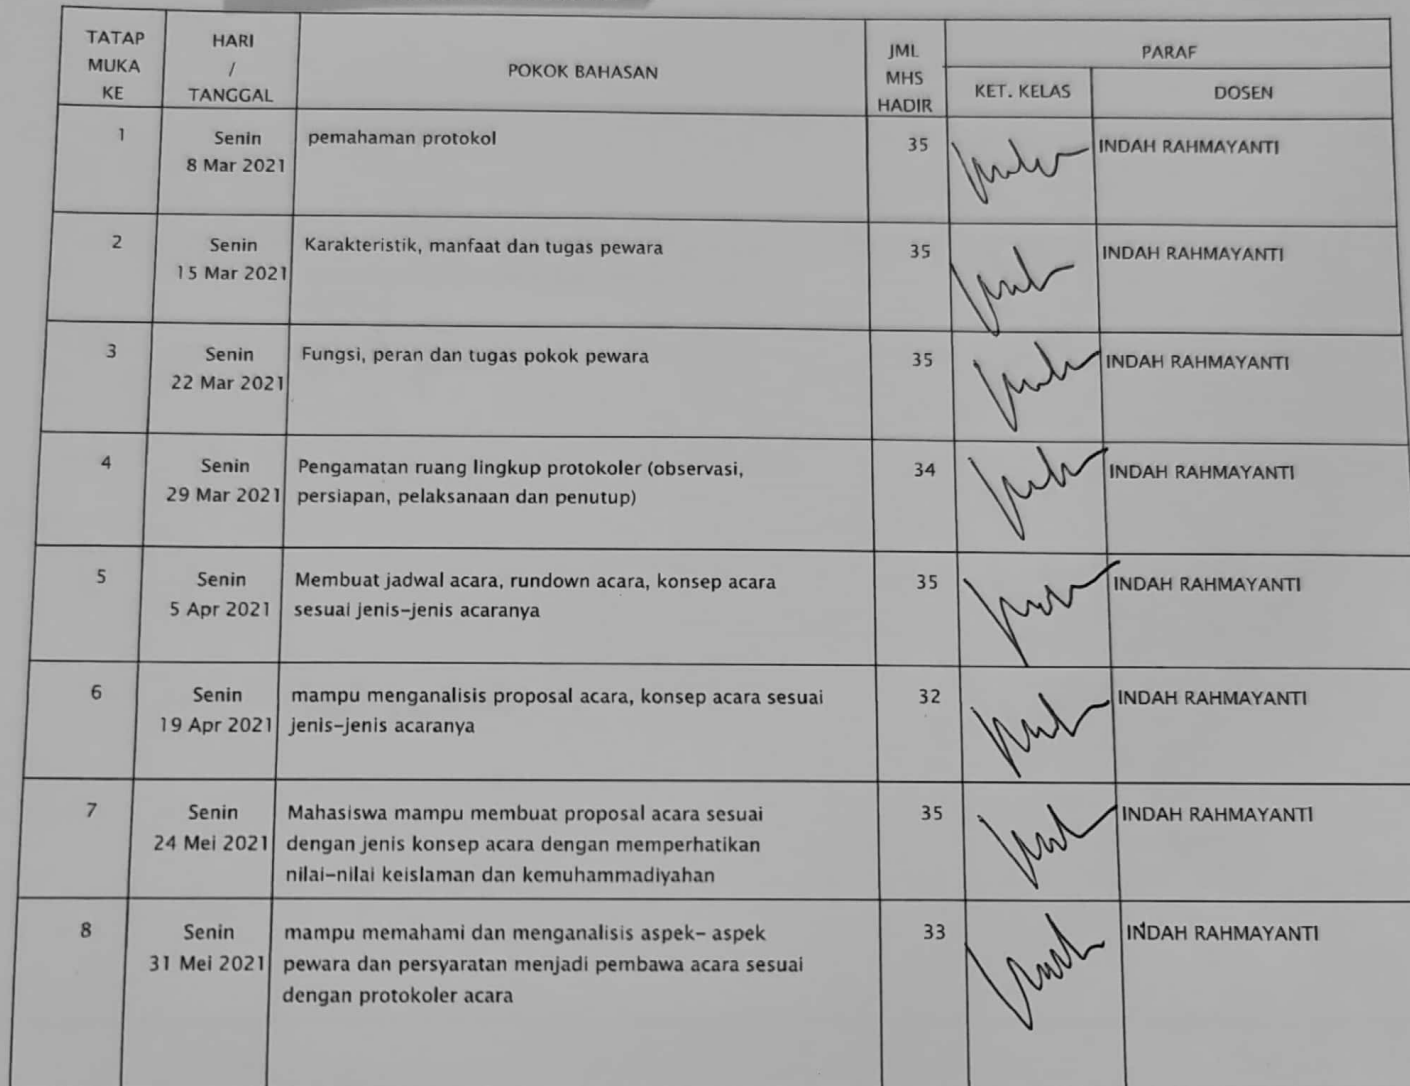 TATAP
MUKA
KE
HARI
/
TANGGAL
POKOK BAHASAN
JML
MHS
HADIR
PARAF
KET. KELAS
DOSEN
1
Senin
8 Mar 2021
pemahaman protokol
35
INDAH RAHMAYANTI
2
Senin
15 Mar 2021
Karakteristik, manfaat dan tugas pewara
35
INDAH RAHMAYANTI
3
Senin
22 Mar 2021
Fungsi, peran dan tugas pokok pewara
35
INDAH RAHMAYANTI
4
Senin
29 Mar 2021
Pengamatan ruang lingkup protokoler (observasi,
persiapan, pelaksanaan dan penutup)
34
INDAH RAHMAYANTI
5
Senin
5 Apr 2021
Membuat jadwal acara, rundown acara, konsep acara
sesuai jenis-jenis acaranya
35
INDAH RAHMAYANTI
6
Senin
19 Apr 2021
mampu menganalisis proposal acara, konsep acara sesuai
jenis-jenis acaranya
32
INDAH RAHMAYANTI
7
Senin
24 Mei 2021
Mahasiswa mampu membuat proposal acara sesuai
dengan jenis konsep acara dengan memperhatikan
nilai-nilai keislaman dan kemuhammadiyahan
35
INDAH RAHMAYANTI
8
Senin
31 Mei 2021
mampu memahami dan menganalisis aspek- aspek
pewara dan persyaratan menjadi pembawa acara sesuai
dengan protokoler acara
33
INDAH RAHMAYANTI